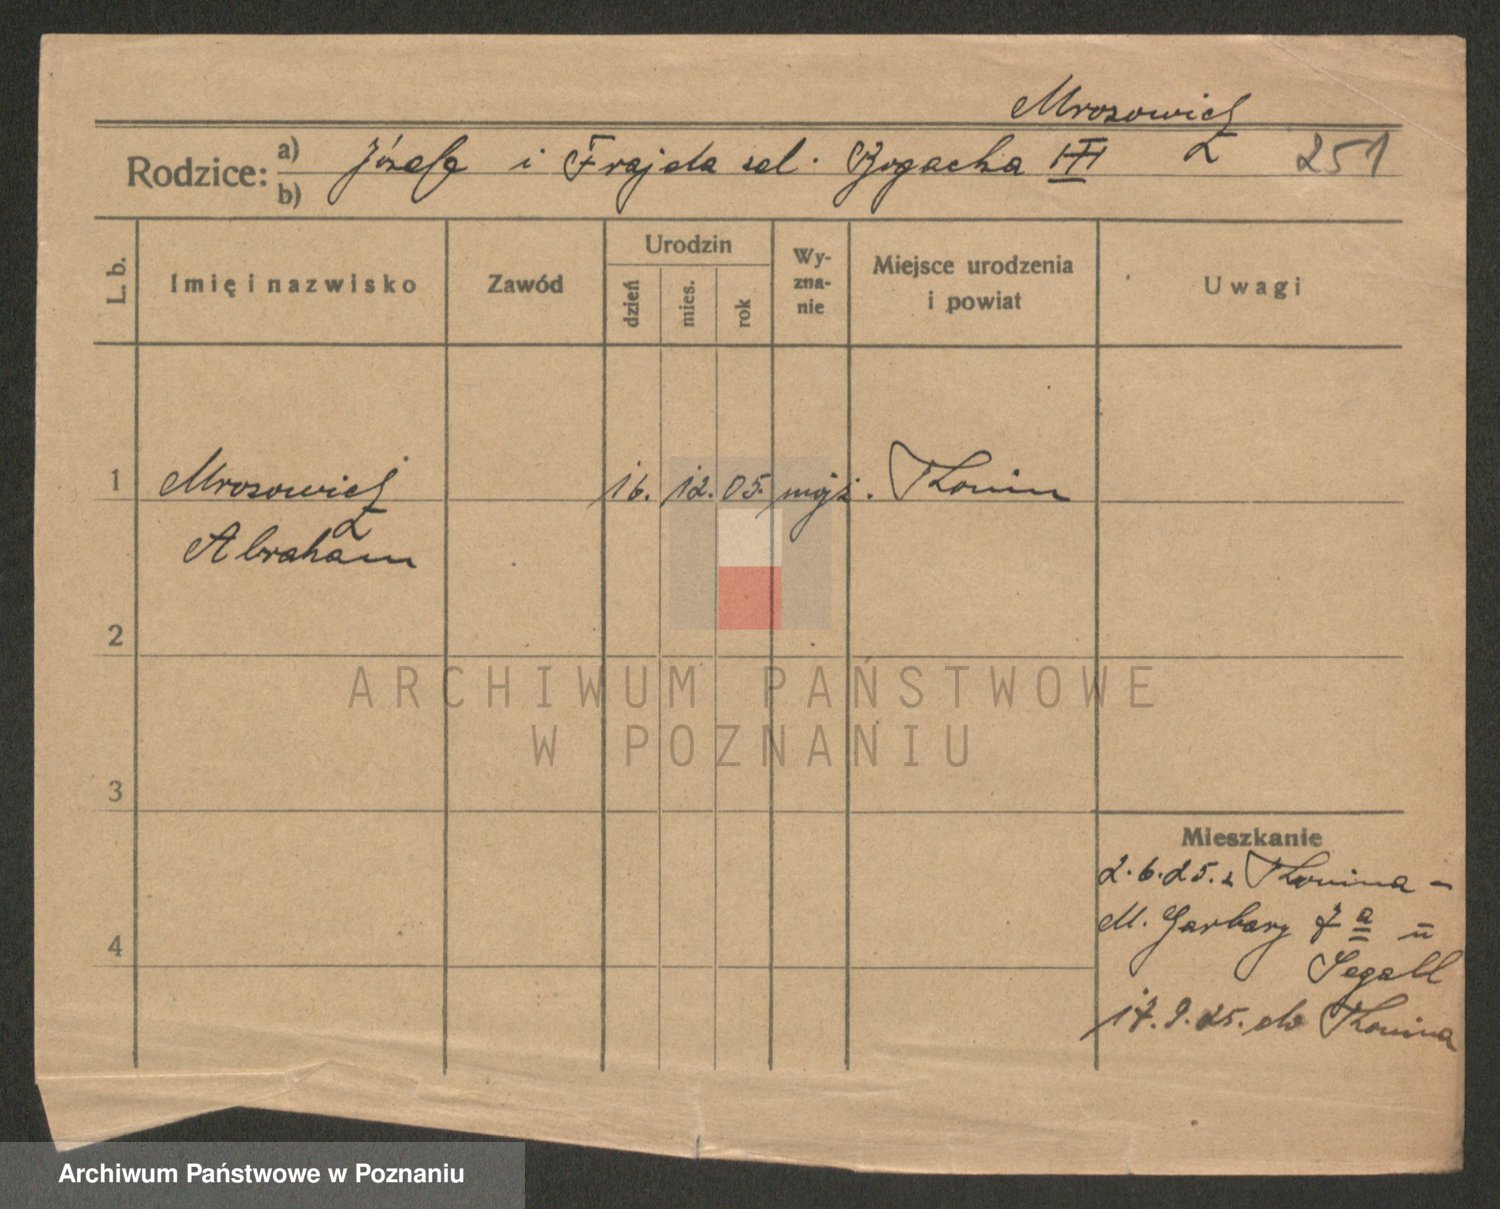 Mrosowicz
Rodzice: a) Józefa i Frajda III 251
b)
L. b. Imię i nazwisko Zawód Urodzin dzień mies. rok Wyznanie Miejsce urodzenia i powiat Uwagi
1 Mrosowicz 16. 12. 05. mojż. Konin
Abraham
2
ARCHIWUM PAŃSTWOWE
W POZNANIU
3
Mieszkanie
2.6.25. z Konina -
4 M. Garbary 7 a u
Segall
17.9.25. do Konina
Archiwum Państwowe w Poznaniu